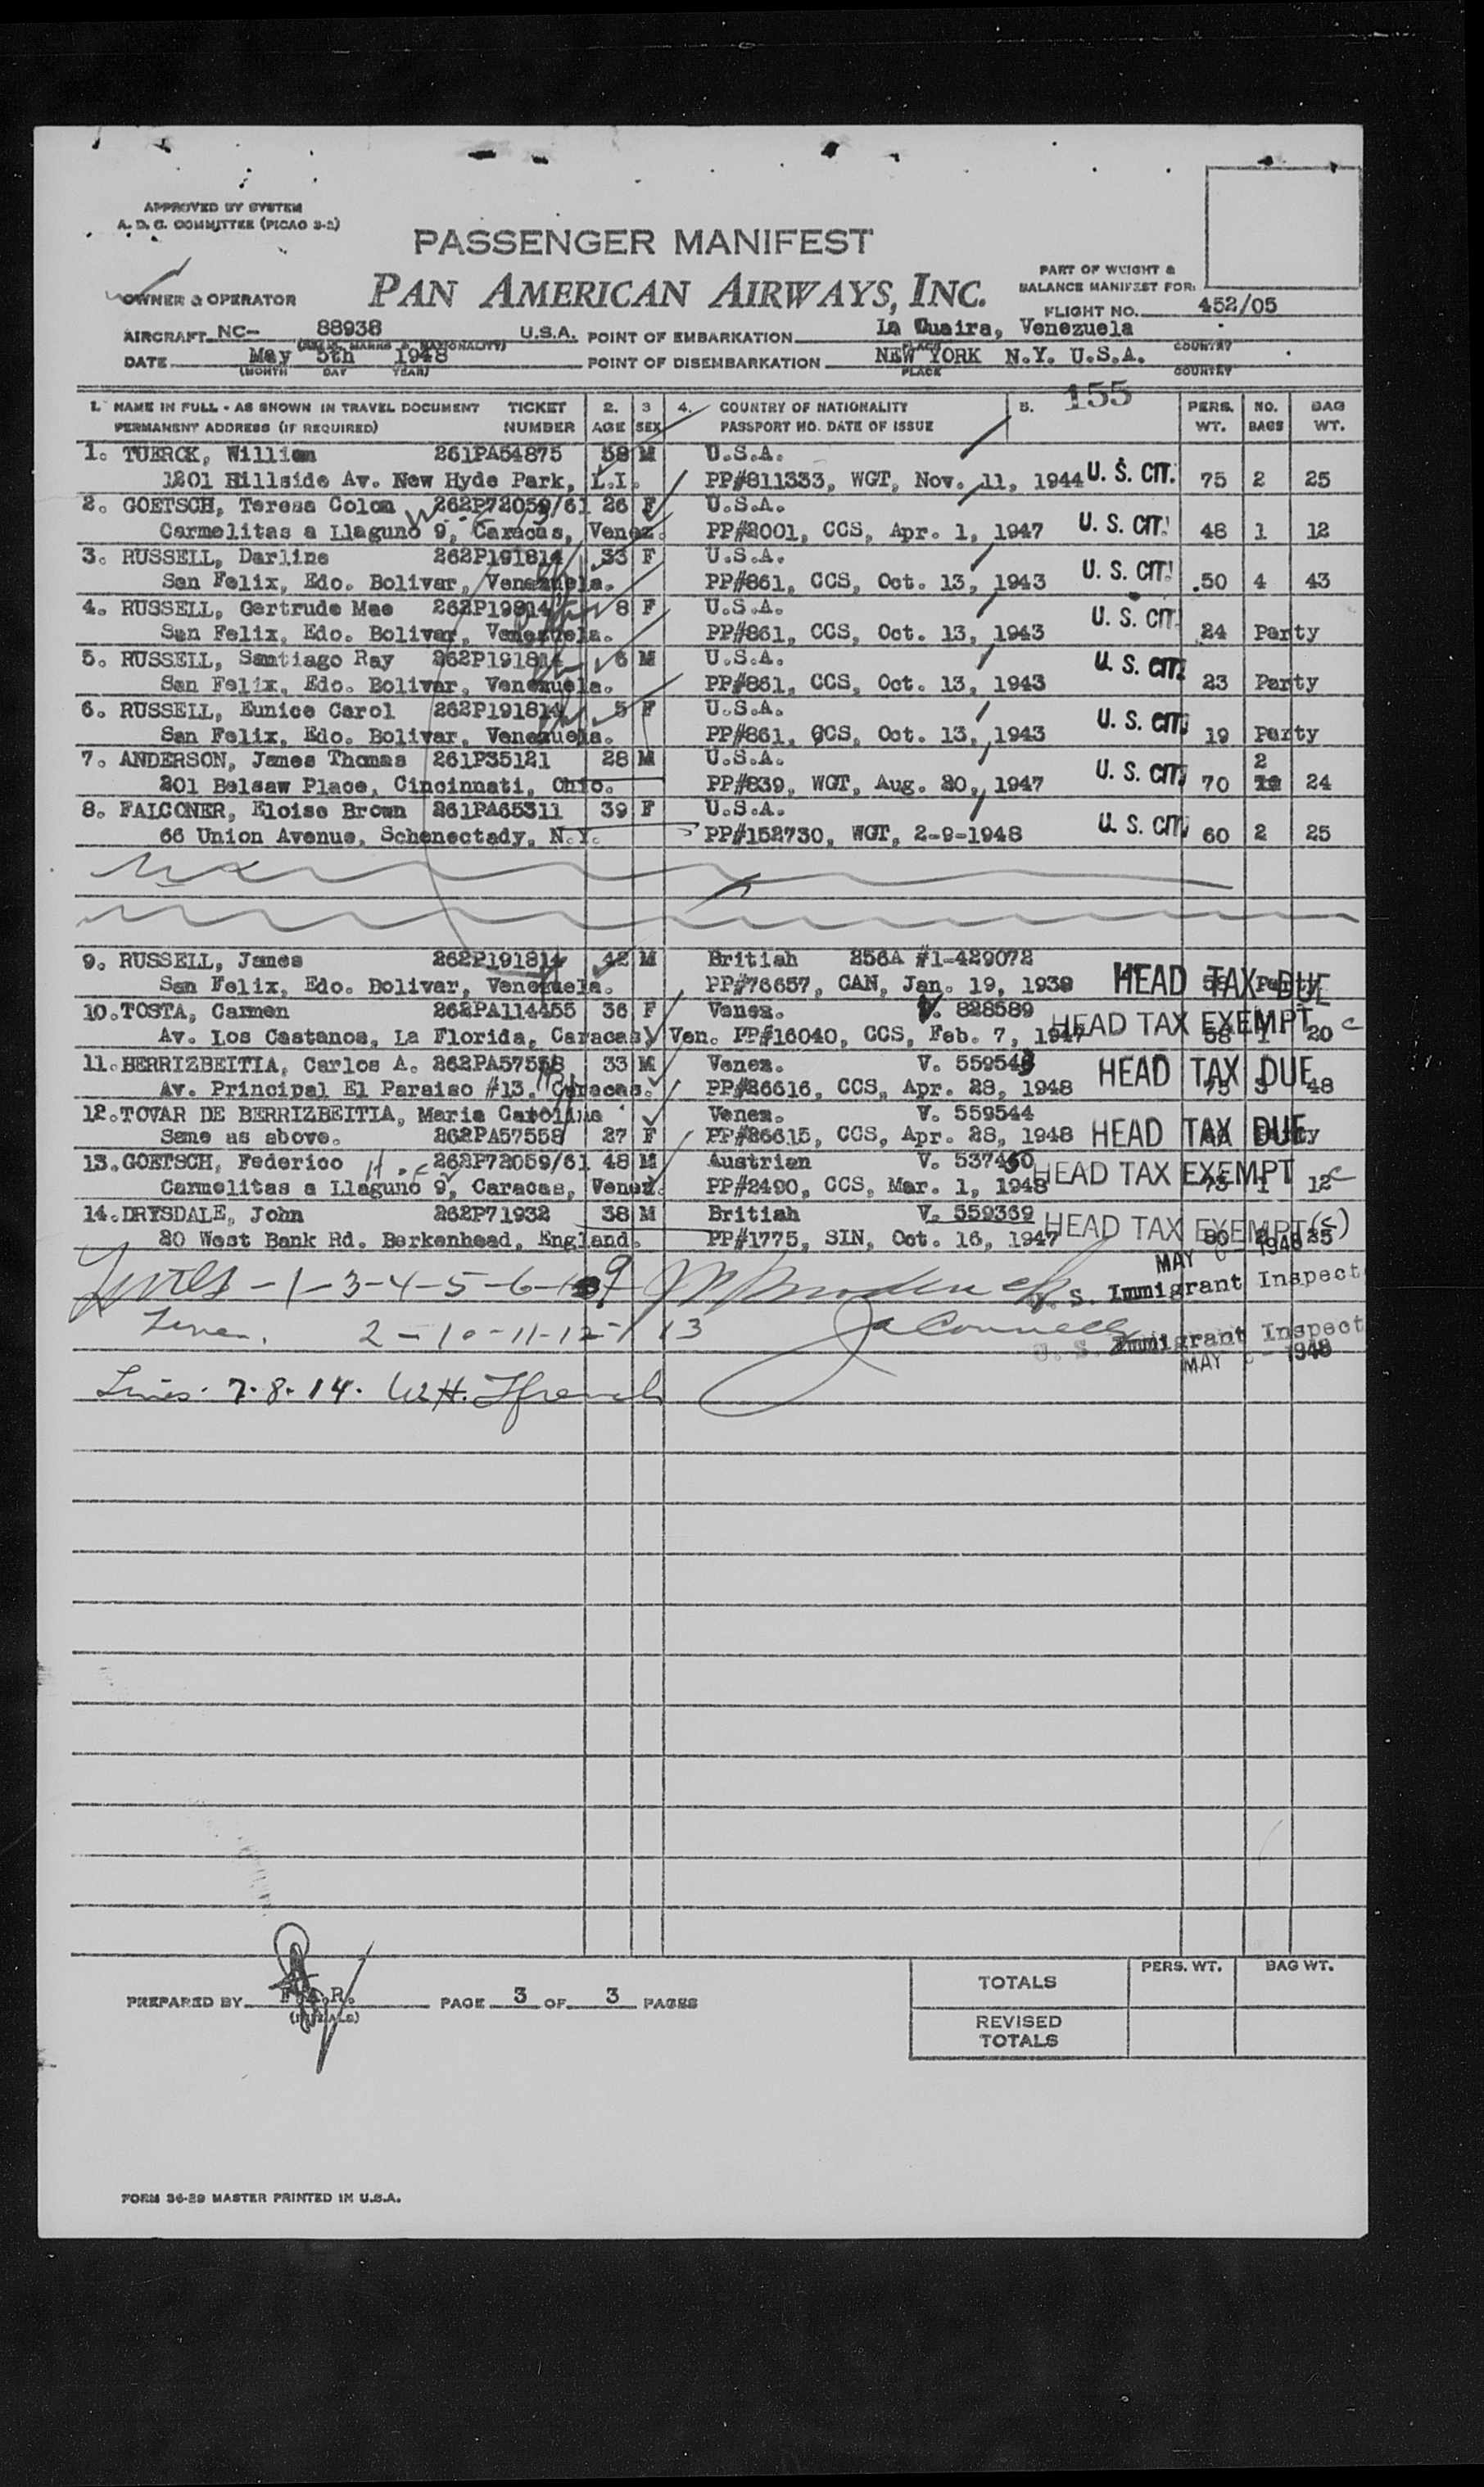 APPROVED BY SYSTEM
A. D. C. COMMITTEE (PICAO 3-2)
PASSENGER MANIFEST
PAN AMERICAN AIRWAYS, INC.
OWNER & OPERATOR
PART OF WEIGHT &
BALANCE MANIFEST FOR:
FLIGHT NO. 452/05
AIRCRAFT NC- 88938 U.S.A. POINT OF EMBARKATION La Guaira, Venezuela
(REGIS. MARKS & NATIONALITY) PLACE COUNTRY
DATE May 5th 1948 POINT OF DISEMBARKATION NEW YORK N.Y. U.S.A.
(MONTH DAY YEAR) PLACE COUNTRY
155
1. NAME IN FULL - AS SHOWN IN TRAVEL DOCUMENT TICKET 2. 3 4. COUNTRY OF NATIONALITY 5. PERS. NO. BAG
PERMANENT ADDRESS (IF REQUIRED) NUMBER AGE SEX PASSPORT NO. DATE OF ISSUE WT. BAGS WT.
1. TUERCK, William 261PA54875 58 M U.S.A.
1201 Hillside Av. New Hyde Park, L.I. PP#811333, WGT, Nov. 11, 1944 U. S. CIT. 75 2 25
2. GOETSCH, Teresa Colon 262P72059/61 26 F U.S.A.
Carmelitas a Llaguno 9, Caracas, Venez. PP#2001, CCS, Apr. 1, 1947 U. S. CIT. 48 1 12
3. RUSSELL, Darline 262P191814 33 F U.S.A.
San Felix, Edo. Bolivar, Venezuela. PP#861, CCS, Oct. 13, 1943 U. S. CIT. 50 4 43
4. RUSSELL, Gertrude Mae 262P19814 8 F U.S.A.
San Felix, Edo. Bolivar, Venezuela. PP#861, CCS, Oct. 13, 1943 U. S. CIT. 24 Party
5. RUSSELL, Santiago Ray 262P191814 6 M U.S.A.
San Felix, Edo. Bolivar, Venezuela. PP#861, CCS, Oct. 13, 1943 U. S. CIT. 23 Party
6. RUSSELL, Eunice Carol 262P191814 5 F U.S.A.
San Felix, Edo. Bolivar, Venezuela. PP#861, CCS, Oct. 13, 1943 U. S. CIT. 19 Party
7. ANDERSON, James Thomas 261P35121 28 M U.S.A. 2
201 Belsaw Place, Cincinnati, Ohio. PP#839, WGT, Aug. 20, 1947 U. S. CIT. 70 24
8. FALCONER, Eloise Brown 261PA65311 39 F U.S.A.
66 Union Avenue, Schenectady, N.Y. PP#152730, WGT, 2-9-1948 U. S. CIT. 60 2 25
9. RUSSELL, James 262P191814 42 M British 256A #1-429072
San Felix, Edo. Bolivar, Venezuela. PP#76657, CAN, Jan. 19, 1938 HEAD TAX DUE Party
10. TOSTA, Carmen 262PA114455 36 F Venez. V. 828589
Av. Los Castanos, La Florida, Caracas, Ven. PP#16040, CCS, Feb. 7, 1947 HEAD TAX EXEMPT 58 1 20 c
11. BERRIZBEITIA, Carlos A. 262PA57558 33 M Venez. V. 559543
Av. Principal El Paraiso #13. Caracas. PP#26616, CCS, Apr. 28, 1948 HEAD TAX DUE 75 3 48
12. TOVAR DE BERRIZBEITIA, Maria Carolina Venez. V. 559544
Same as above. 262PA57558 27 F PP#26615, CCS, Apr. 28, 1948 HEAD TAX DUE Party
13. GOETSCH, Federico 262P72059/61 48 M Austrian V. 537450
Carmelitas a Llaguno 9, Caracas, Venez. PP#2490, CCS, Mar. 1, 1948 HEAD TAX EXEMPT 75 1 12 c
14. DRYSDALE, John 262P71932 38 M British V. 559369
20 West Bank Rd. Berkenhead, England. PP#1775, SIN, Oct. 16, 1947 HEAD TAX EXEMPT (c) 80 2 35
MAY 1948
Lines - 1-3-4-5-6-9 U. S. Immigrant Inspect
Lines. 2-10-11-12-13 J Connell U. S. Immigrant Inspect
MAY 1948
Lines. 7.8.14. W.H. French
PREPARED BY F.A.R. PAGE 3 OF 3 PAGES
(INITIALS)
PERS. WT. BAG WT.
TOTALS
REVISED
TOTALS
FORM 36-29 MASTER PRINTED IN U.S.A.